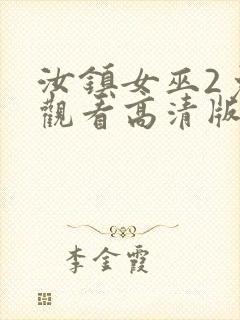 汝鎮女巫2
觀看高清版
李金霞